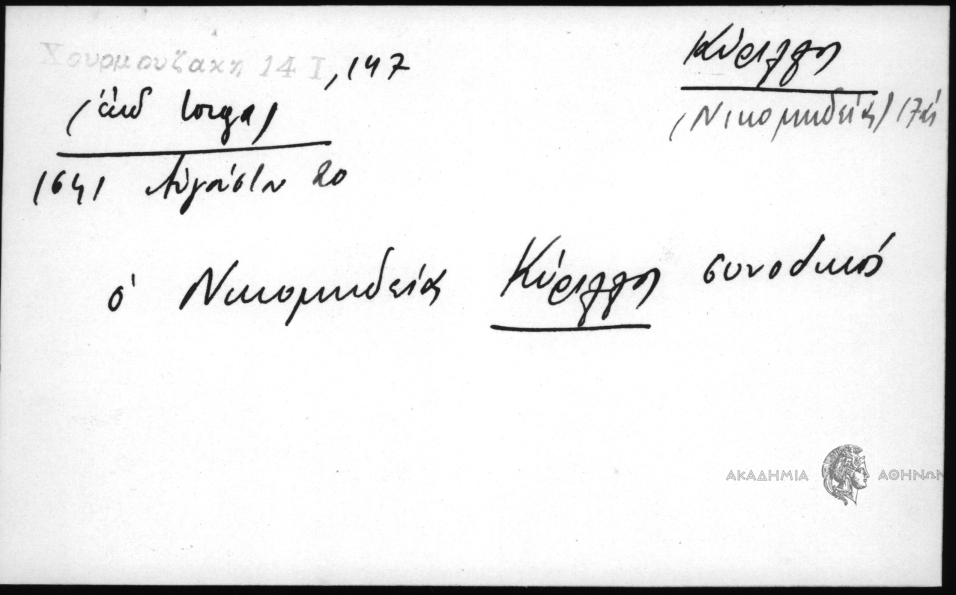 Χουρμουζάκη 14 Ι, 147
Κύριλλος
(ἐκδ Iorga)
(Νικομηδείας) 17ος
1641 Αὐγούστου 20
ὁ Νικομηδείας Κύριλλος συνοδικός
ΑΚΑΔΗΜΙΑ ΑΘΗΝΩΝ